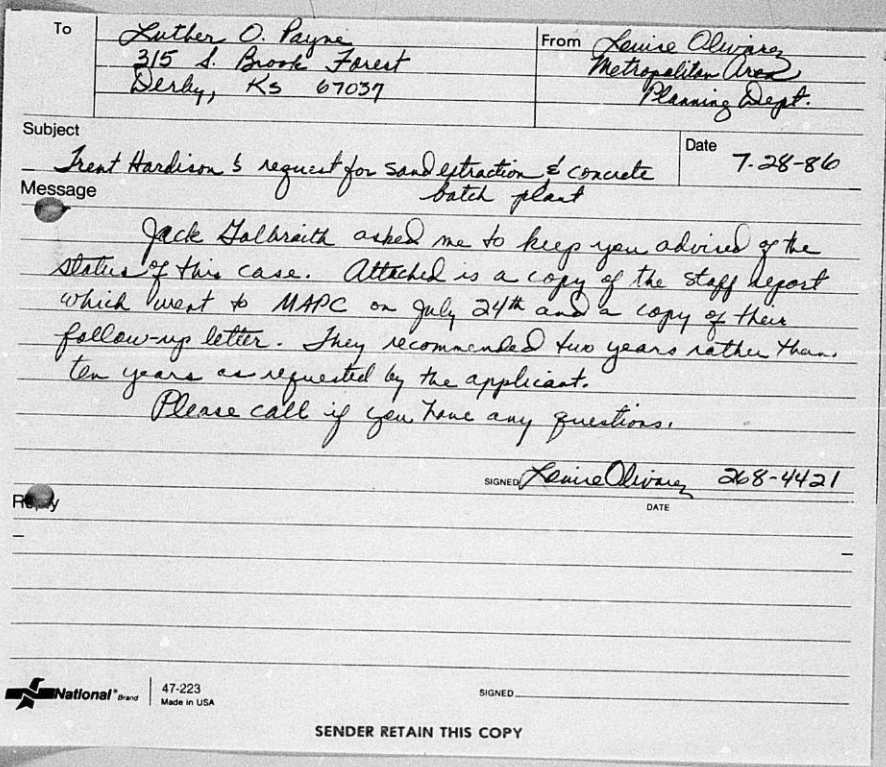 To Luther O. Payne
315 S. Brook Forest
Derby, KS 67037
From Louise Olivarez
Metropolitan Area
Planning Dept.
Subject
Trent Hardison's request for sand extraction & concrete
batch plant
Date 7-28-86
Message
Jack Galbraith asked me to keep you advised of the
status of this case. Attached is a copy of the staff report
which went to MAPC on July 24th and a copy of their
follow-up letter. They recommended two years rather than
ten years as requested by the applicant.
Please call if you have any questions.
SIGNED Louise Olivarez 268-4421
DATE
Reply
National Brand 47-223
Made in USA
SIGNED
SENDER RETAIN THIS COPY